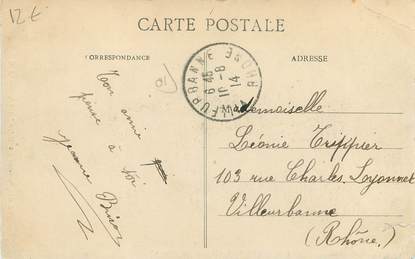 12 €
CARTE POSTALE
CORRESPONDANCE
ADRESSE
VILLEURBANNE RHONE
6 45
10-8
14
Ton amie
pense
à toi
Jeanne
Mademoiselle
Léonie Trippier
103 rue Charles Lyonnet
Villeurbanne
(Rhône)